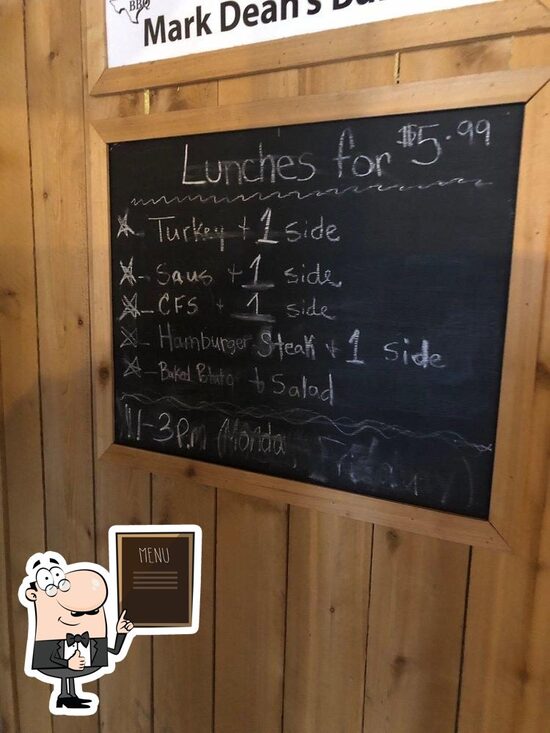 BBQ
Mark Dean's
Lunches for $5.99
Turkey + 1 side
Saus + 1 side
CFS + 1 side
Hamburger Steak + 1 side
Baked Potato + Salad
11-3 p.m (Monda
MENU